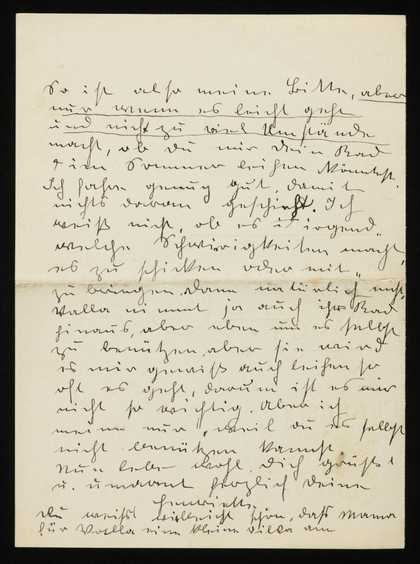 So ist also meine Bitte, aber
nur wenn es leicht geht
und nicht zu viel Umstände
macht, ob du mir dein Rad
im Sommer leihen könntest.
Ich fahre genug gut, damit
nichts daran geschieht. Ich
weiß nicht, ob es irgend„
welche Schwierigkeiten macht,
es zu schicken oder mit„
zu bringen, dann natürlich nicht,
Valla nimmt ja auch ihr Rad
hinaus, aber eben um es selbst
zu benützen, aber sie wird
es mir gewiß auch leihen so
oft es geht, darum ist es mir
nicht so wichtig. Aber ich
meine nur, weil du es selbst
nicht benützen kannst.
Nun lebe wohl. Dich grüßt
u. umarmt herzlich deine
Henriette
Du weißt vielleicht schon, daß Mama
für Valla eine kleine Villa am